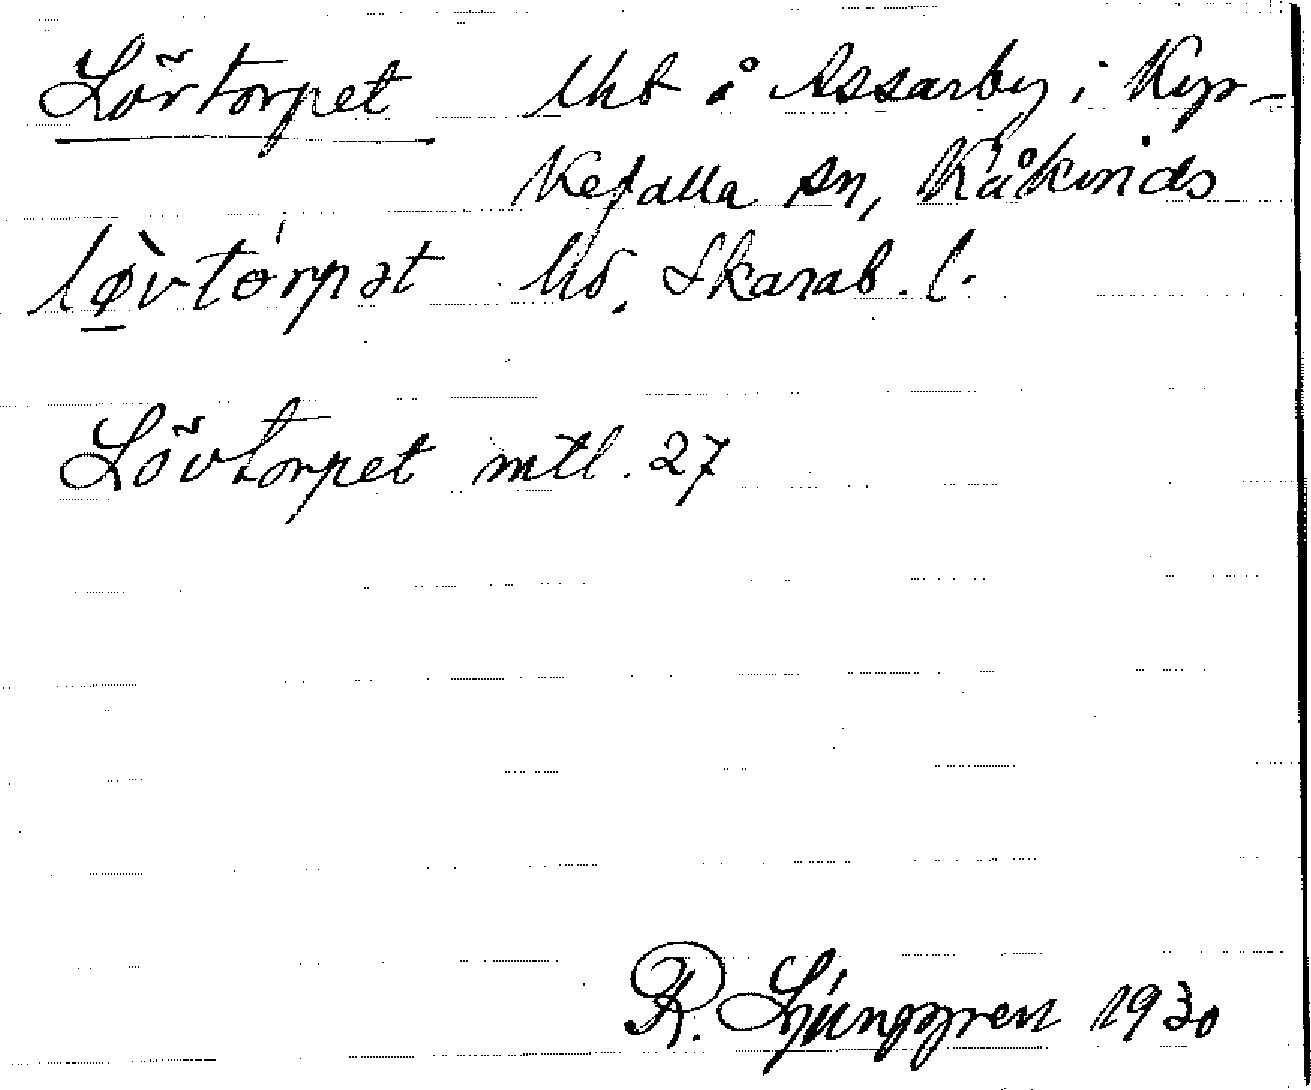 Lövtorpet Uhb å Assarby i Kyr-
kefalla sn, Kåkinds
lø̀vtórpət hd. Skarab. l.
Lövtorpet mtl. 27
R. Ljunggren 1930